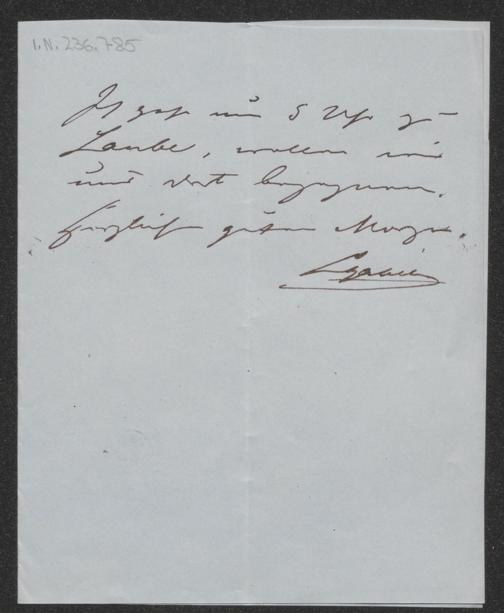 I.N. 236.785
Ich geh um 5 Uhr zu
Laube, wollen wir
uns dort begegnen.
Herzlich guten Morgen.